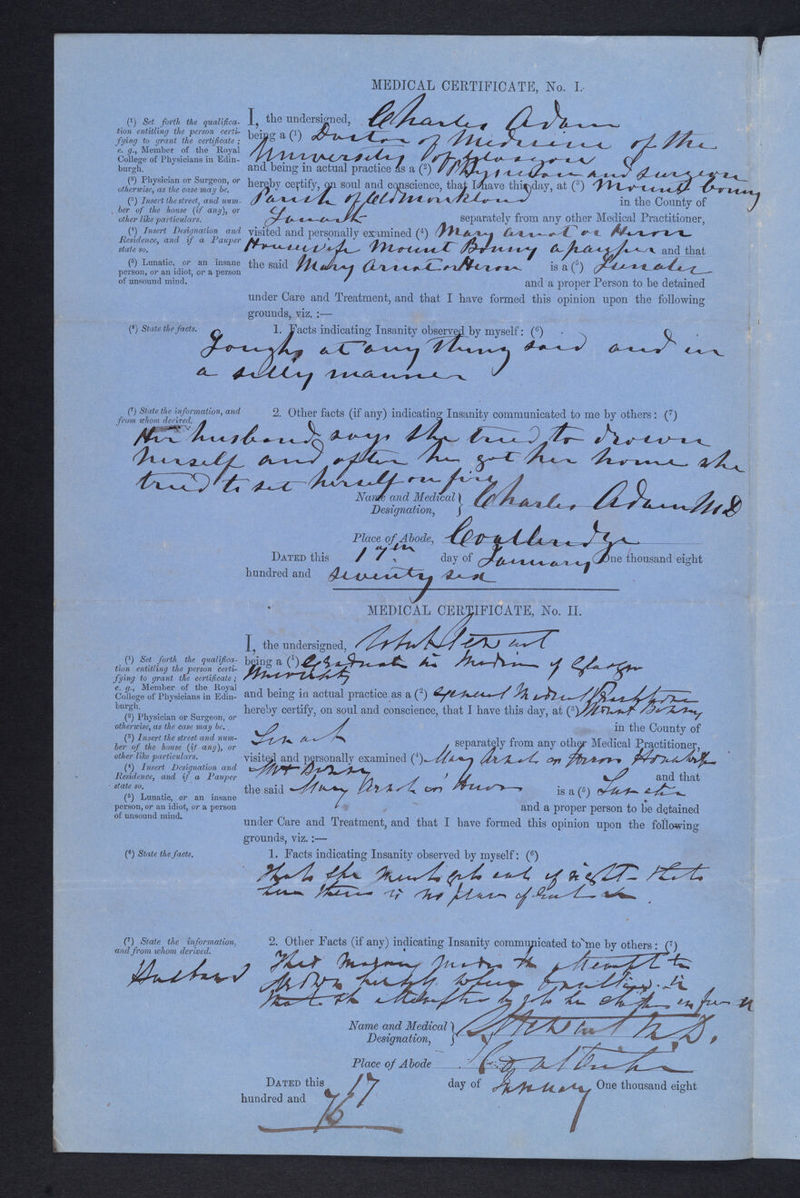 MEDICAL CERTIFICATE, No. I.
(¹) Set forth the qualifica-
tion entitling the person certi-
fying to grant the certificate;
e. g., Member of the Royal
College of Physicians in Edin-
burgh.
(²) Physician or Surgeon, or
otherwise, as the case may be.
(³) Insert the street, and num-
ber of the house (if any), or
other like particulars.
(⁴) Insert Designation and
Residence, and if a Pauper
state so.
(⁵) Lunatic, or an insane
person, or an idiot, or a person
of unsound mind.
I, the undersigned, Charles Adam
being a (¹) Doctor of Medicine of the
University of Glasgow
and being in actual practice as a (²) Physician and Surgeon
hereby certify, on soul and conscience, that I have this day, at (³) Mount Bonny
Parish of Old Monkland in the County of
Lanark separately from any other Medical Practitioner,
visited and personally examined (⁴) Mary Arnot or Heron
Housewife Mount Bonny a pauper and that
the said Mary Arnot or Heron is a (⁵) Lunatic
and a proper Person to be detained
under Care and Treatment, and that I have formed this opinion upon the following
grounds, viz. :—
(⁶) State the facts.
1. Facts indicating Insanity observed by myself: (⁶)
Laughs at any thing said and in
a silly manner
(⁷) State the information, and
from whom derived.
2. Other facts (if any) indicating Insanity communicated to me by others: (⁷)
Her husband says she tried to drown
herself and after he got her home she
tried to set herself on fire
Name and Medical Designation, Charles Adam MD
Place of Abode, Coatbridge
DATED this 17th day of January One thousand eight
hundred and seventy six
MEDICAL CERTIFICATE, No. II.
(¹) Set forth the qualifica-
tion entitling the person certi-
fying to grant the certificate;
e. g., Member of the Royal
College of Physicians in Edin-
burgh.
(²) Physician or Surgeon, or
otherwise, as the case may be.
(³) Insert the street and num-
ber of the house (if any), or
other like particulars.
(⁴) Insert Designation and
Residence, and if a Pauper
state so.
(⁵) Lunatic, or an insane
person, or an idiot, or a person
of unsound mind.
I, the undersigned, Stewart
being a (¹) Graduate in Medicine of Glasgow
University
and being in actual practice as a (²) General Medical Practitioner
hereby certify, on soul and conscience, that I have this day, at (³) Mount Bonny
in the County of
Lanark separately from any other Medical Practitioner,
visited and personally examined (⁴) Mary Arnot or Heron Housewife
Mt Bonny and that
the said Mary Arnot or Heron is a (⁵) Lunatic
and a proper person to be detained
under Care and Treatment, and that I have formed this opinion upon the following
grounds, viz. :—
(⁶) State the facts.
1. Facts indicating Insanity observed by myself: (⁶)
That she out of sight - that
there is no place of
(⁷) State the information,
and from whom derived.
2. Other Facts (if any) indicating Insanity communicated to me by others: (⁷)
Husband
made an attempt to
drown herself
on fire
Name and Medical Designation, Stewart M.D.
Place of Abode Coatbridge
DATED this 17 day of January One thousand eight
hundred and 76